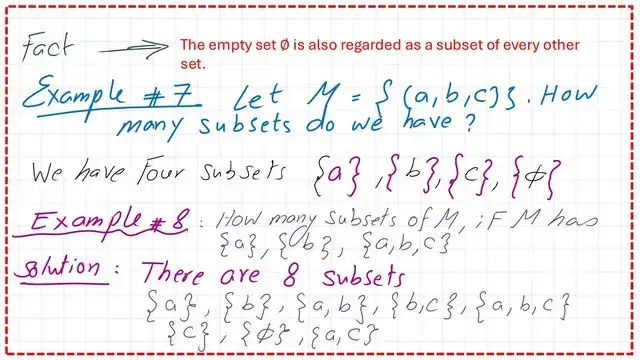 Fact → The empty set Ø is also regarded as a subset of every other
set.
Example #7 Let M = {(a,b,c)}. How
many subsets do we have?
We have Four subsets {a}, {b}, {c}, {ϕ}
Example #8: How many subsets of M, if M has
{a}, {b}, {a,b,c}
Solution: There are 8 subsets
{a}, {b}, {a,b}, {b,c}, {a,b,c}
{c}, {ϕ}, {a,c}